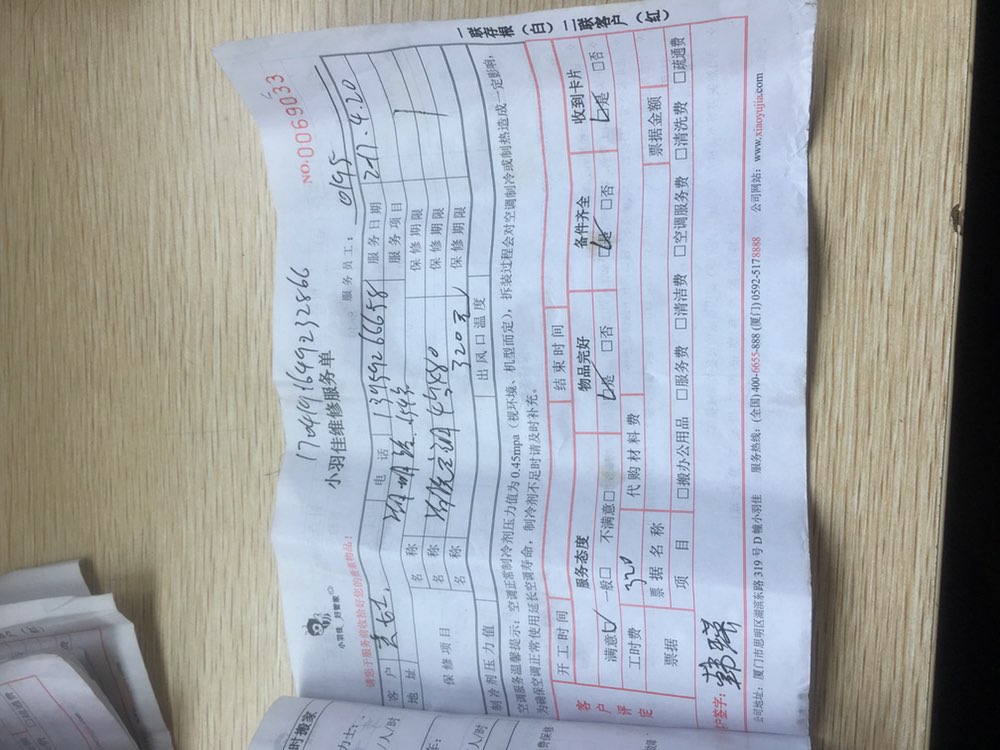 一联存根（白）二联客户（红）
NO.0069033
17041916499232866
小羽佳 好管家
小羽佳维修服务单
服务员工： 0195
请您于服务前收拾好您的贵重物品！
客户 电话 13959266658 服务日期 2017.4.20
地址 服务项目
保修项目 名称 保修期限
名称 保修期限
名称 320元 保修期限
制冷剂压力值 出风口温度
空调服务温馨提示：空调正常制冷剂压力值为0.45mpa（视环境、机型而定），拆装过程会对空调制冷或制热造成一定影响，
为确保空调正常使用延长空调寿命，制冷剂不足时请及时补充。
开工时间 结束时间
客户评定 服务态度 物品完好 备件齐全 收到卡片
满意☑ 一般□ 不满意□ ☑是 □否 ☑是 □否 ☑是 □否
工时费 320 代购材料费
票据 票据名称 票据金额
项目 □搬办公用品 □服务费 □清洁费 □空调服务费 □清洗费 □疏通费
户签字：
公司地址：厦门市思明区湖滨东路319号D幢小羽佳 服务热线：(全国)400-6655-888 (厦门)0592-5178888 公司网站：www.xiaoyujia.com
时搬家
/人/时
人/时